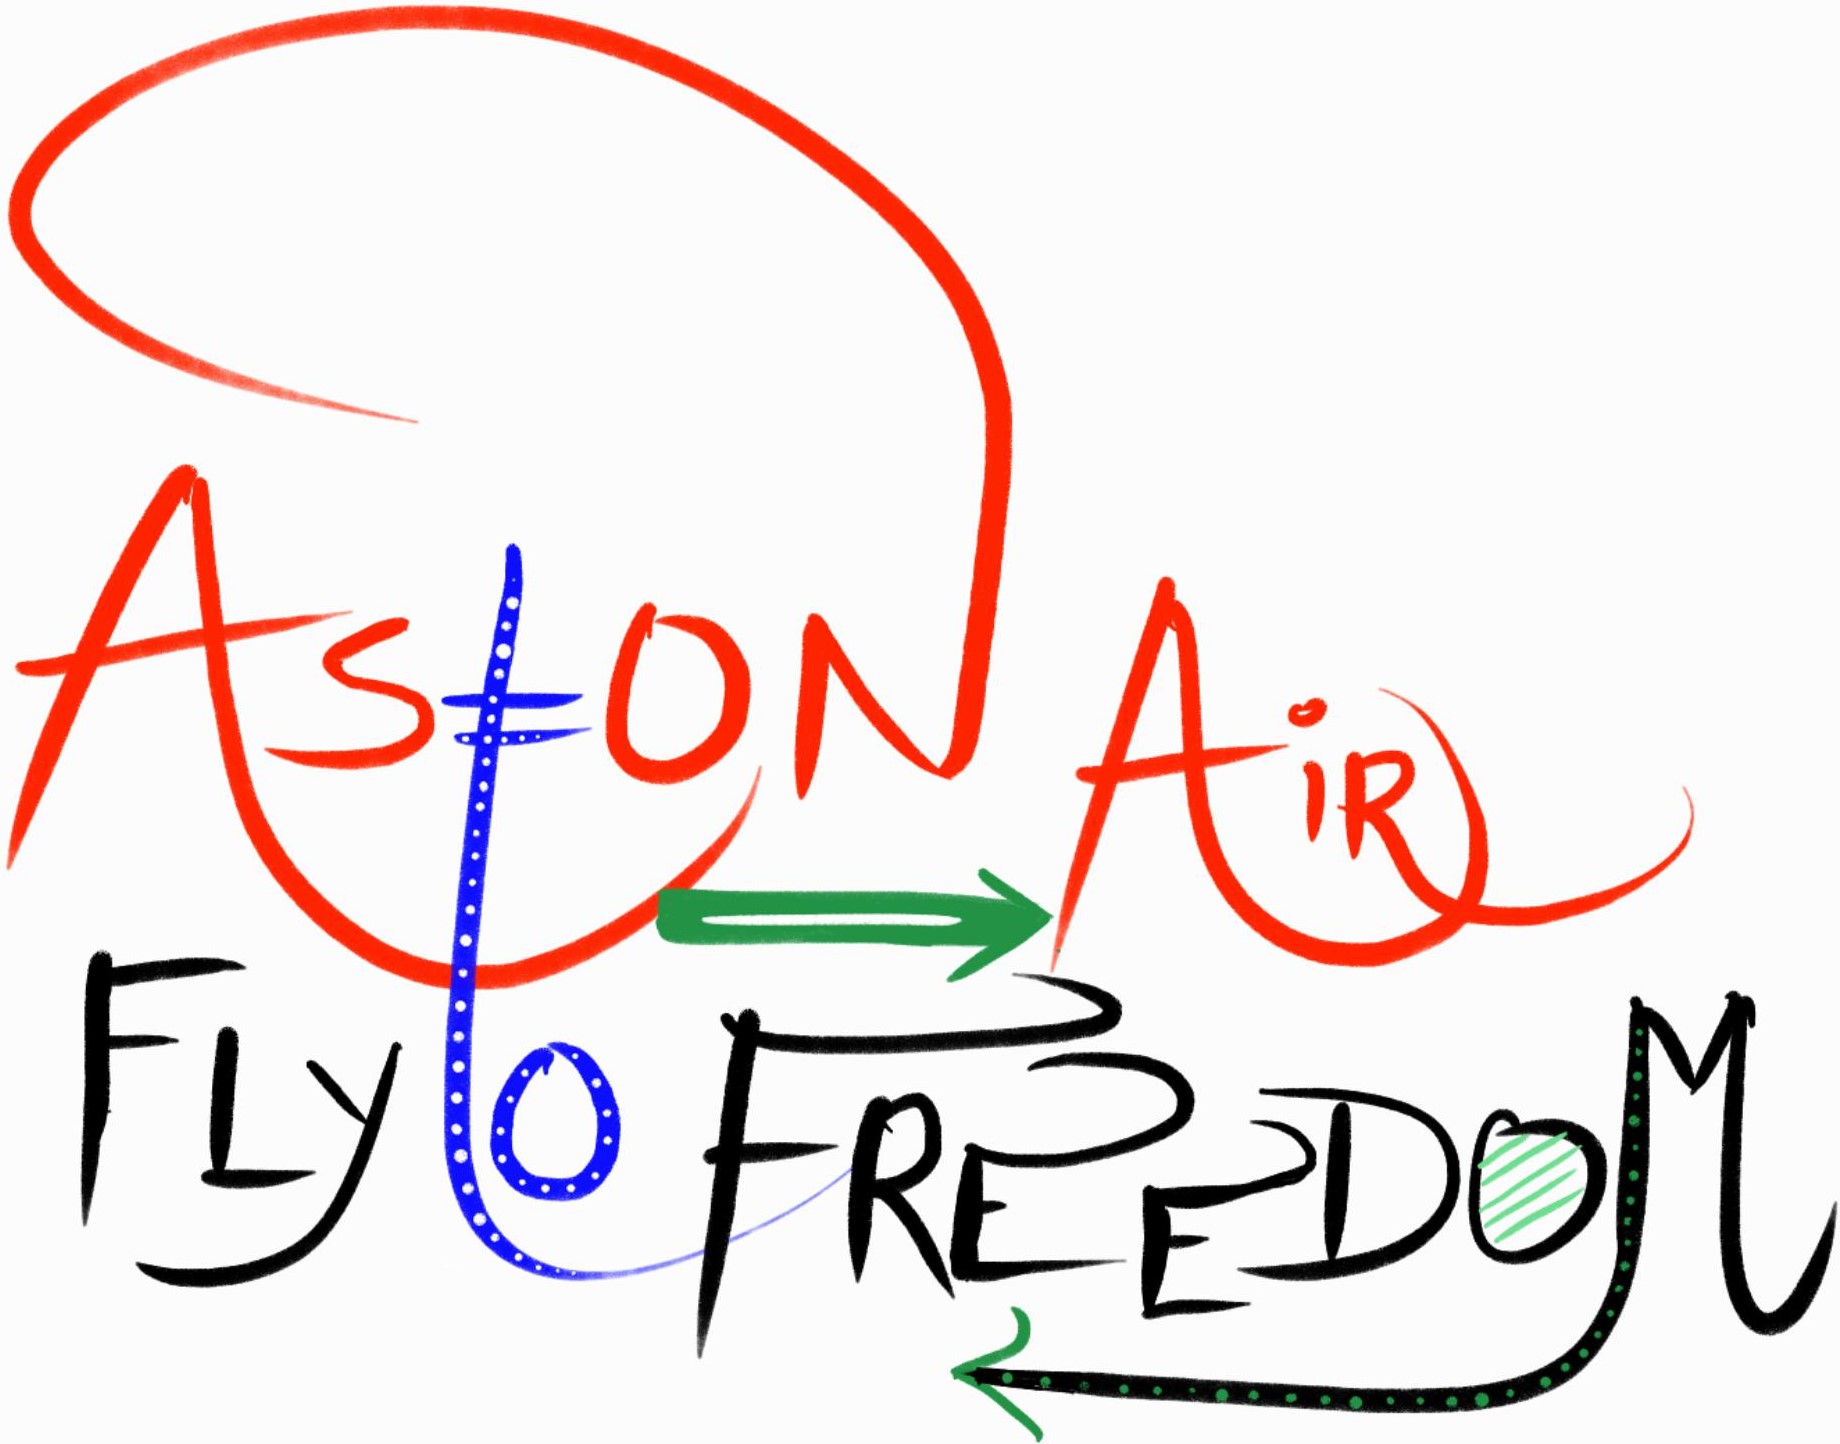 AstON AiR
FLy to FREEDOM